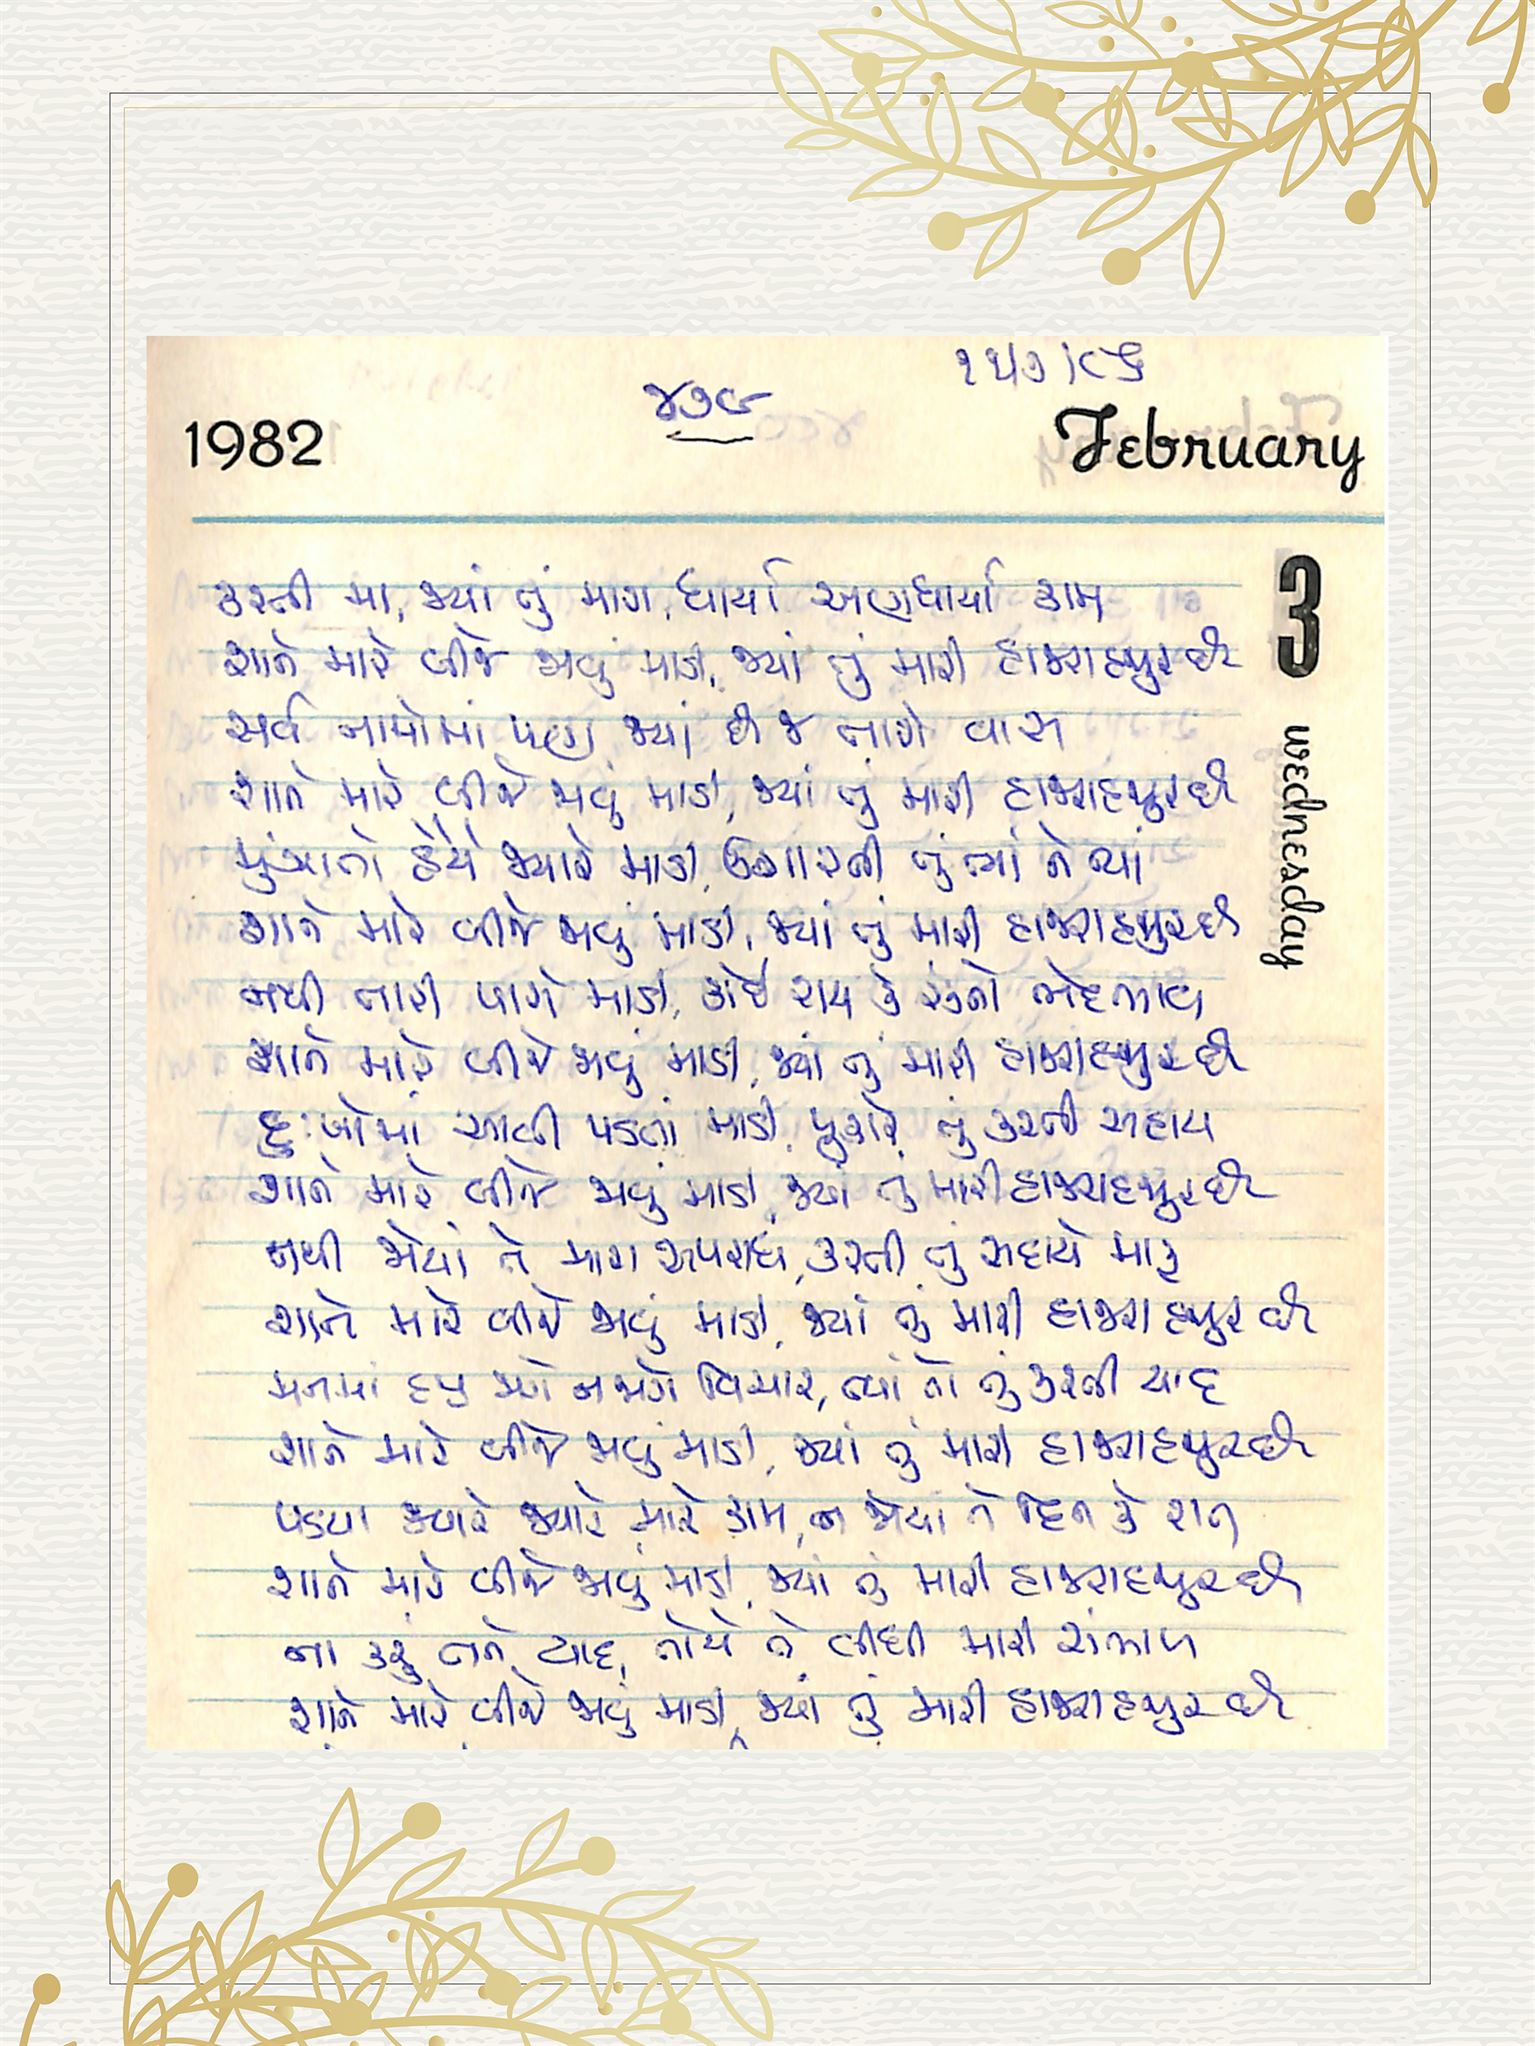 ૧૫/૭/૮૬
૪૭૯
1982
February
3
wednesday
કરતી મા, જ્યાં તું મારા, ધાર્યા અણધાર્યા કામ
શાને મારે બીજે જાવું માડી, જ્યાં તું મારી હાજરાહજુર છે
સર્વ નામોમાં પણ જ્યાં છે જ તારો વાસ
શાને મારે બીજે જાવું માડી, જ્યાં તું મારી હાજરાહજુર છે
મુંઝાતો હૈયે જ્યારે માડી, ઉગારતી તું ત્યાં ને ત્યાં
શાને મારે બીજે જાવું માડી, જ્યાં તું મારી હાજરાહજુર છે
નથી તારી પાસે માડી, કોઈ રાય કે રંકનો ભેદભાવ
શાને મારે બીજે જાવું માડી, જ્યાં તું મારી હાજરાહજુર છે
દુઃખોમાં આવી પડતાં માડી, પુકારે તું કરતી સહાય
શાને મારે બીજે જાવું માડી, જ્યાં તું મારી હાજરાહજુર છે
નથી જોયાં તેં મારા અપરાધ, કરતી તું સદાયે માફ
શાને મારે બીજે જાવું માડી, જ્યાં તું મારી હાજરાહજુર છે
મનમાં હજુ જાગે ન જાગે વિચાર, ત્યાં તો તું કરતી યાદ
શાને મારે બીજે જાવું માડી, જ્યાં તું મારી હાજરાહજુર છે
પડયા જ્યારે જ્યારે મારે કામ, ન જોયાં તેં દિન કે રાત
શાને મારે બીજે જાવું માડી, જ્યાં તું મારી હાજરાહજુર છે
ના કરું તને યાદ, તોયે તેં લીધી મારી સંભાળ
શાને મારે બીજે જાવું માડી, જ્યાં તું મારી હાજરાહજુર છે